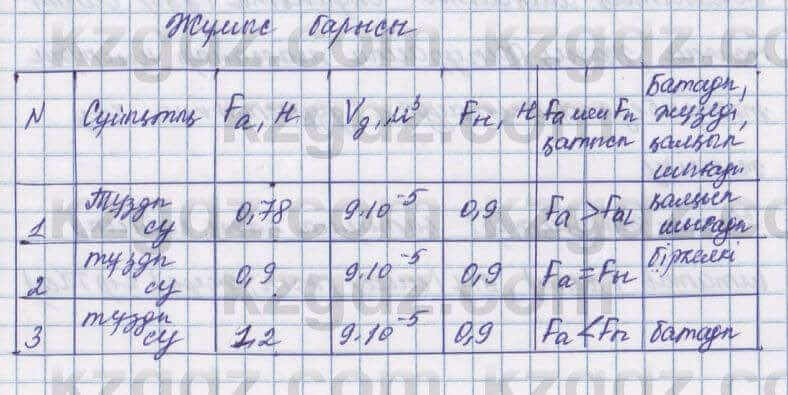 Жұмыс барысы
N Сұйықтық Fа, Н Vд, м³ Fн, Н Fа мен Fн қатысы Батады, жүзеді, қалқып шығады
1 Тұзды су 0,78 9·10⁻⁵ 0,9 Fа > Fаг қалқып шығады
2 тұзды су 0,9 9·10⁻⁵ 0,9 Fа = Fн біркелкі
3 тұзды су 1,2 9·10⁻⁵ 0,9 Fа < Fн батады
kzgdz.com